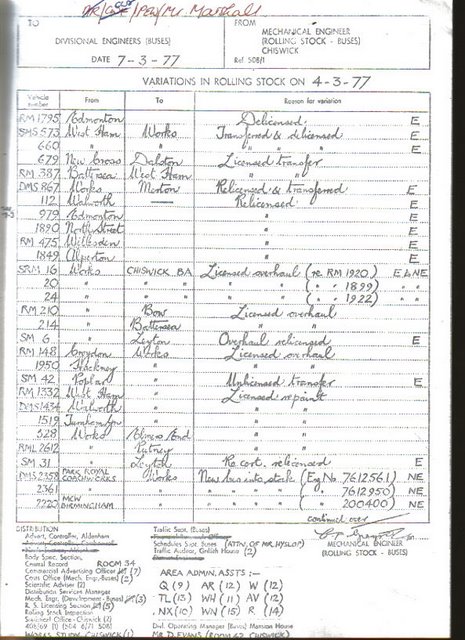 Mr. Marshall
TO
FROM
DIVISIONAL ENGINEERS (BUSES)
MECHANICAL ENGINEER
(ROLLING STOCK - BUSES)
CHISWICK
DATE 7-3-77
Ref. 508/1
VARIATIONS IN ROLLING STOCK ON 4-3-77
Vehicle number From To Reason for variation
RM 1795 Edmonton Delicensed E
SMS 573 West Ham Works Transferred & delicensed E
660 " " " " E
679 New Cross Dalston Licensed transfer
RM 387 Battersea West Ham "
DMS 867 Works Merton Relicensed & transferred E
112 Walworth — Relicensed E
979 Edmonton " E
1890 North Street " E
RM 475 Willesden " E
1849 Alperton " E
SRM 16 Works CHISWICK BA Licensed overhaul (re RM 1920) E & NE
20 " " " " ( " " 1899) " "
24 " " " " ( " " 1922) " "
RM 210 " Bow Licensed overhaul
214 " Battersea " "
SM 6 " Leyton Overhaul relicensed E
RM 148 Croydon Works Licensed overhaul
1950 Hackney " " "
SM 42 Poplar " Unlicensed transfer E
RM 1332 West Ham " Licensed repaint
DMS 1434 Walworth " " "
1519 Turnham Gn " " "
528 Works Elmers End " "
RML 2612 " Putney " "
SM 31 " Leyton Re cert. relicensed E
DMS 2358 PARK ROYAL COACHWORKS Works New bus into stock (Eng No. 7612561) NE
2361 " " " " " " ( " " 7612950) NE
2220 MCW BIRMINGHAM " " " " " ( " " 200400) NE
continued over
DISTRIBUTION
Advert. Controller, Aldenham
Body Spec. Section,
Central Record ROOM 34
Commercial Advertising Officer (7)
Costs Office (Mech. Engr.-Buses) (2)
Scientific Adviser (2)
Distribution Services Manager
Mech. Engr. (Development - Buses) (3)
R. S. Licensing Section (5)
Rolling Stock Inspection
Statistical Office - Chiswick (2)
WORKS STUDY CHISWICK (1)
Traffic Supt. (Buses)
Schedules Supt. Buses (ATTN. OF MR. HYSLOP)
Traffic Auditor, Griffith House (2)
MECHANICAL ENGINEER
(ROLLING STOCK - BUSES)
AREA ADMIN. ASSTS :-
Q (9) AR (12) W (12)
TL (13) WH (11) AV (12)
NX (10) WN (15) R (14)
Divl. Operating Manager (Buses) Mansion House
Mr D. EVANS (ROOM 62, CHISWICK)